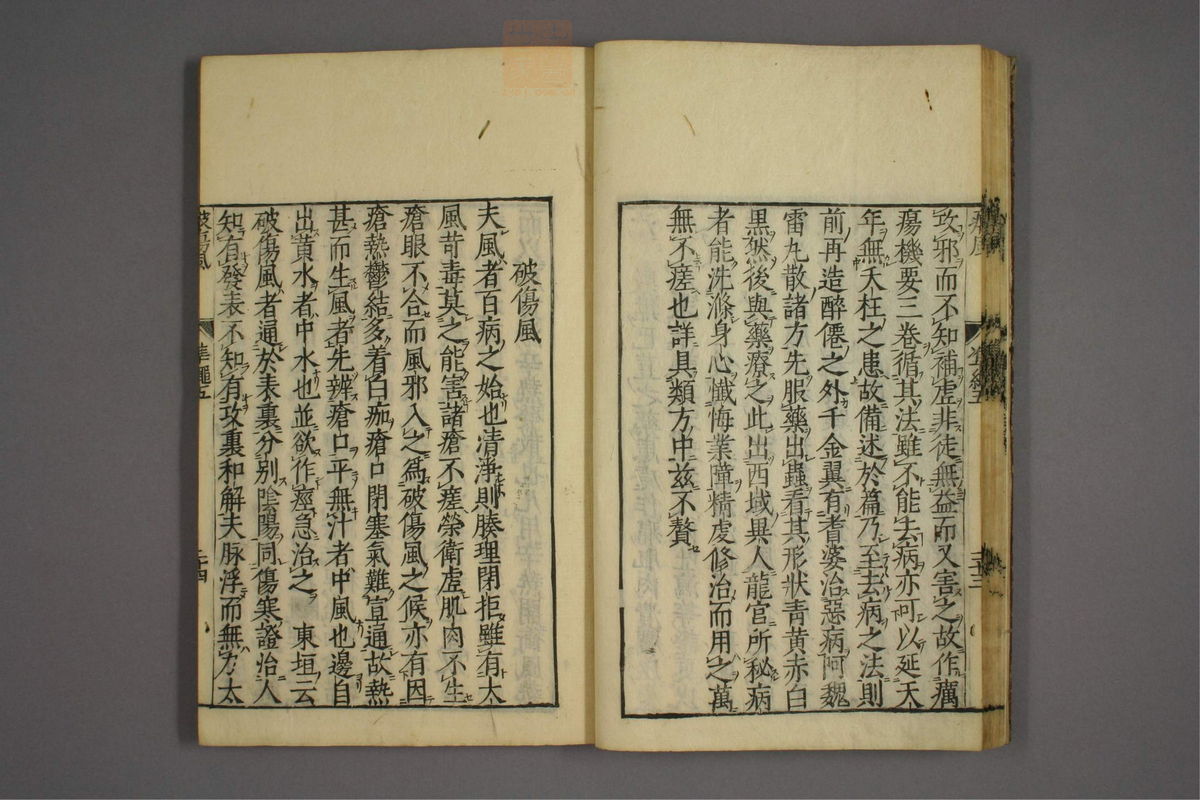 攻邪而不知補虛非徒無益而又害之故作癘
瘍機要三卷循其法雖不能去病亦可以延天
年無夭枉之患故備述於篇乃至去病之法則
前再造醉僊之外千金翼有耆婆治惡病阿魏
雷丸散諸方先服藥出蟲看其形狀青黃赤白
黑然後與藥療之此出西域異人龍宫所秘病
者能洗滌身心懺悔業障精虔修治而用之萬
無不瘥也詳具類方中兹不贅
破傷風
夫風者百病之始也清淨則腠理閉拒雖有太
風苛毒莫之能害諸瘡不瘥榮衛虛肌肉不生
瘡眼不合而風邪入之爲破傷風之候亦有因
瘡熱鬱結多着白痂瘡口閉塞氣難宣通故熱
甚而生風者先辨瘡口平無汁者中風也邊自
出黄水者中水也並欲作痙急治之 東垣云
破傷風者通於表裏分别陰陽同傷寒證治人
知有發表不知有攻裏和解夫脉浮而無力太
破傷風 準繩五 二十四